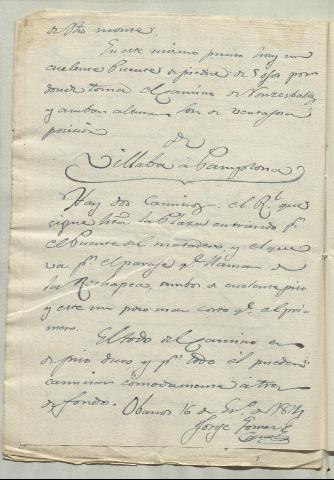 de Sto monte.
En este mismo punto hay un
ecelente Puente de piedra de 5 ojos por
donde toma el Camino de Ronzesballes
y ambas alturas son de ventajosa
posicion
de
Villaba a Pamplona
Hay dos Caminos: el Rl. que
sigue hta. la Plaza entrando pr.
el Puente del matadero, y el que
va pr. el paraje qe. llaman de
la Rochapea, ambos de ecelente piso
y este un poco mas corto qe. el pri-
mero.
El todo del Camino es
de piso duro y pr. todo él pueden
caminar cómodamente a tres
de fondo. Obanos 16 de En.o de 18
Jorge Gomez